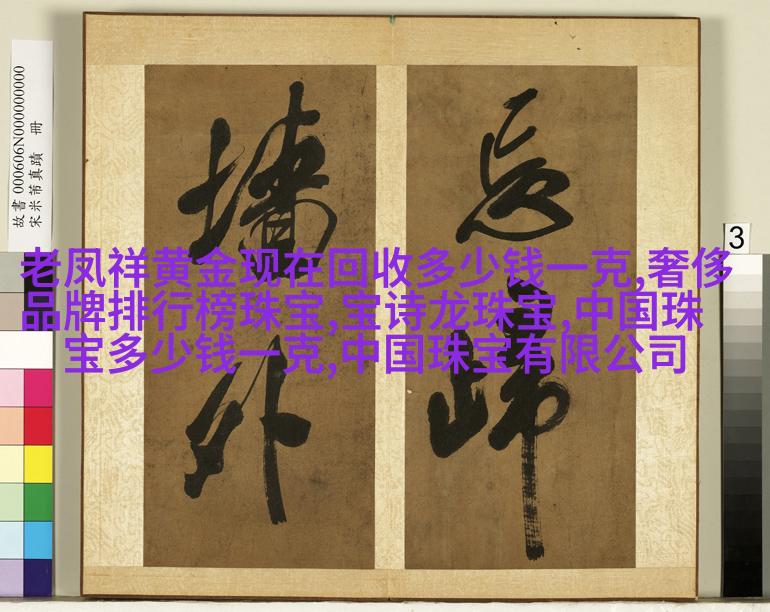 故書 000606N000000000
宋米芾真蹟 冊
忘
歸
墻
外
3
老凤祥黄金现在回收多少钱一克,奢侈
品牌排行榜珠宝,宝诗龙珠宝,中国珠
宝多少钱一克,中国珠宝有限公司